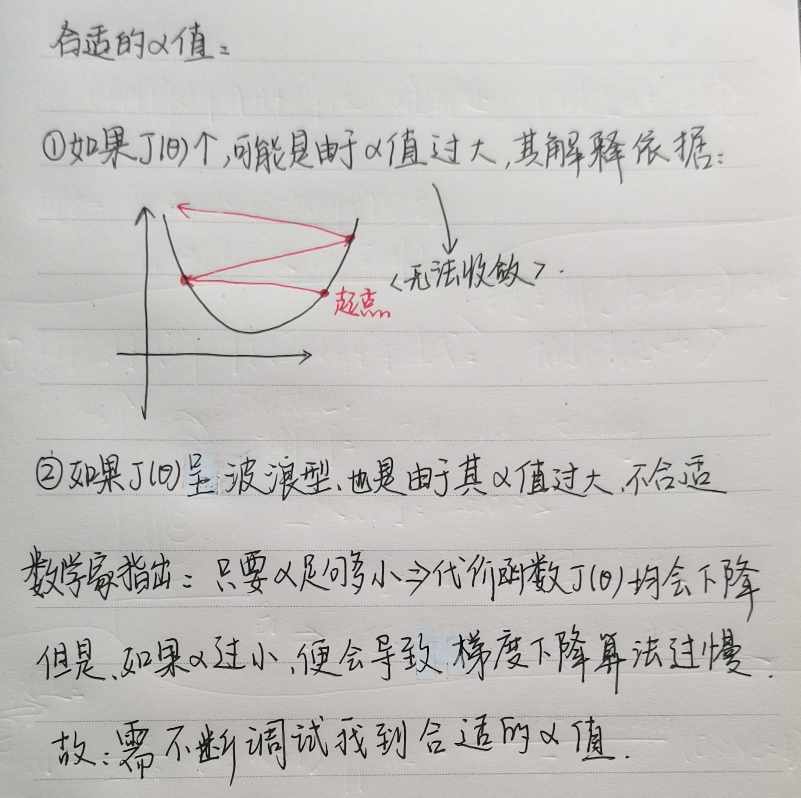 合适的α值:
①如果J(θ)个,可能是由于α值过大,其解释依据:
<无法收敛>.
起点
②如果J(θ)呈波浪型、也是由于其α值过大、不合适
数学家指出:只要α足够小⇒代价函数J(θ)均会下降
但是、如果α过小、便会导致梯度下降算法过慢.
故:需不断调试找到合适的α值.